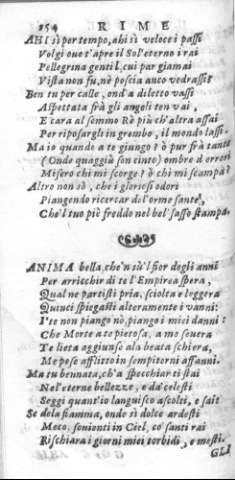 254 RIME
AHI sì per tempo, ahi sì veloce i passi
Volgi oue t'apre il Sol'eterno i rai
Pellegrina gentil, cui par giamai
Vista non fu, nè poscia anco vedrassi?
Ben tu per calle, ond'a diletto vassi
Aspettata frà gli angoli ten vai,
E cara al sommo Rè più ch'altra assai
Per riposargli in grembo, il mondo lassi.
Ma io quando a te giungo? ò pur frà tante
(Onde quaggiù son cinto) ombre d'errori
Misero chi mi scorge? ò chi mi scampa?
Altro non sò, che i gloriosi odori
Piangendo ricercar de l'orme sante,
Che'l tuo piè freddo nel bel sasso stampa.
ANIMA bella, che'n sù'l fior degli anni
Per arricchir di te l'Empirea spera,
Qual ne partisti pria, sciolta e leggera
Quinci spiegasti alteramente i vanni:
I'te non piango nò, piango i miei danni:
Che Morte a te pietosa, a me seuera
Te lieta aggiunse a la beata schiera,
Me pose afflitto in sempiterni affanni.
Ma tu bennata, ch'a specchiarti stai
Nel'eterne bellezze, e da'celesti
Seggi quant'io languisco ascolti, e sai:
Se de la fiamma, onde sì dolce ardesti
Meco, souienti in Ciel, co'santi rai
Rischiara i giorni miei torbidi, e mesti.
GLI